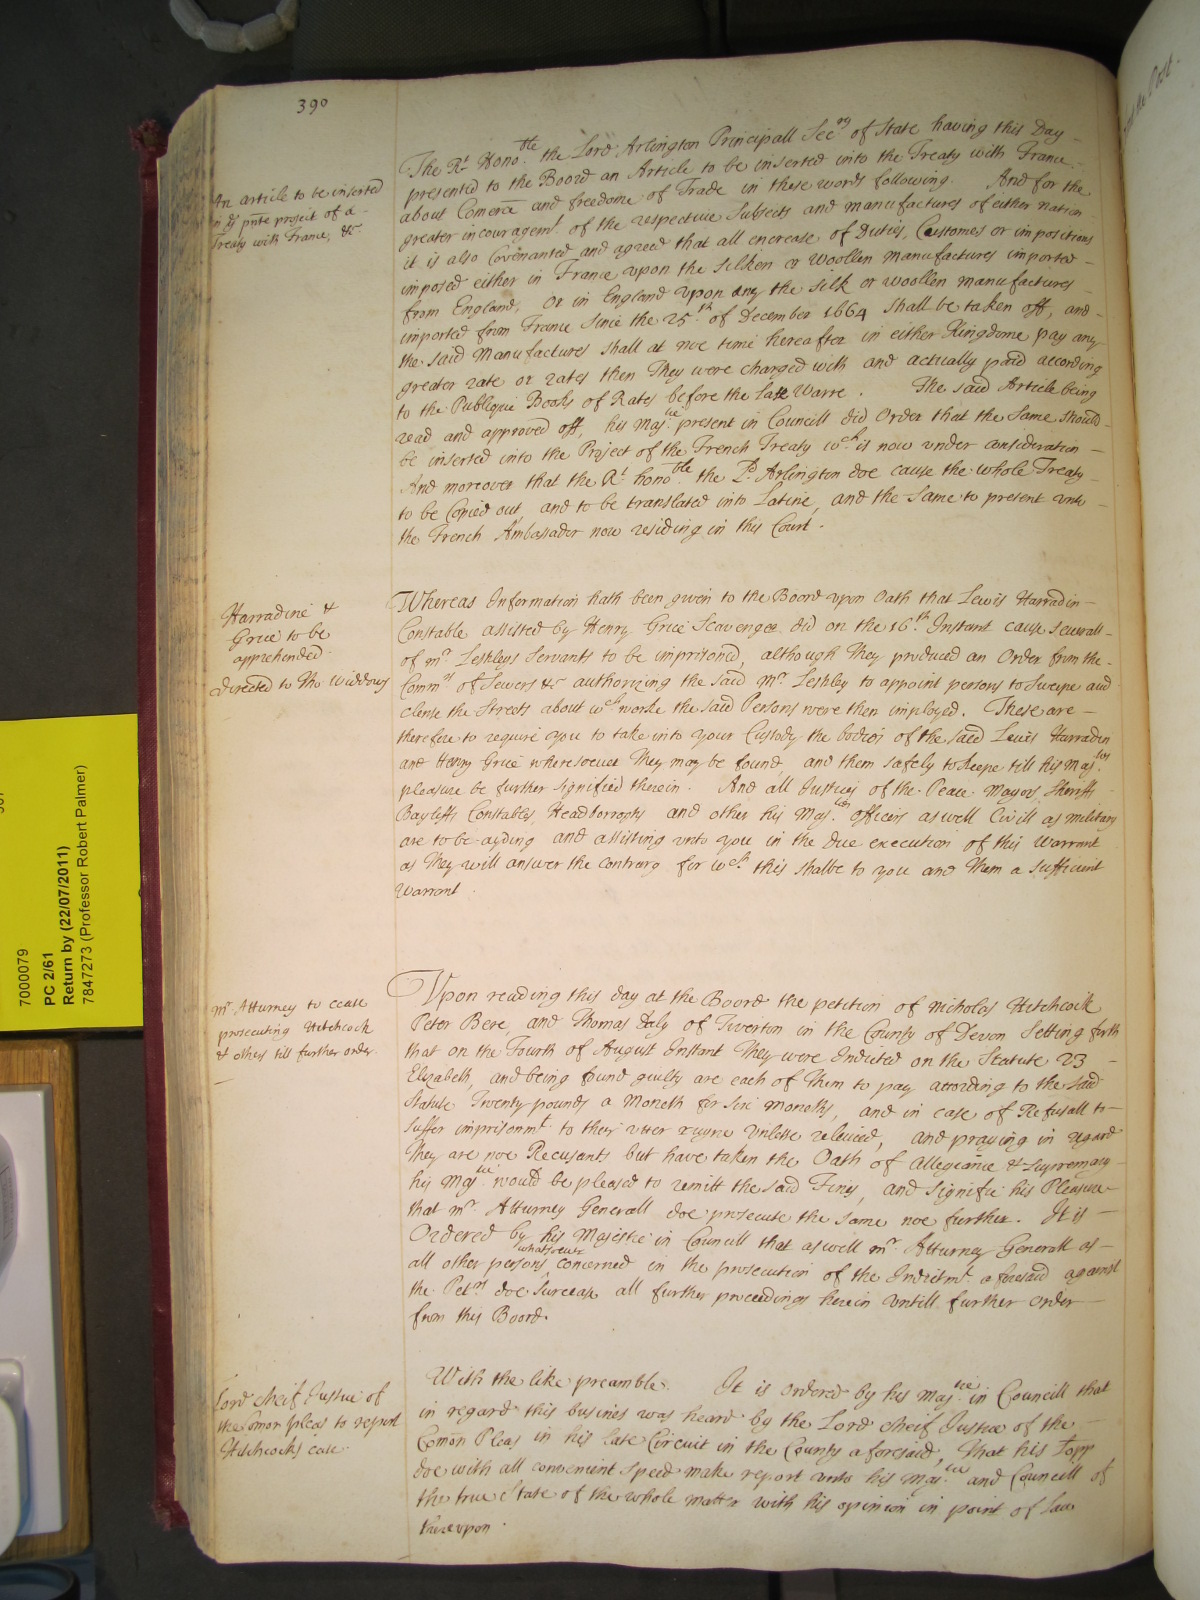 390
An article to be inserted
in ye pnte project of a
Treaty with France, &c.
The Rt. Honoble. the Lord Arlington Principall Secry of State having this Day
presented to the Boord an Article to be inserted into the Treaty with France
about Comerce and freedome of Trade in these words following. And for the
greater incouragemt. of the respective Subjects and manufactures of either nation
it is also Covenanted and agreed that all encrease of Duties, Customes or impositions
imposed either in France upon the silken or woollen manufactures imported
from England, Or in England upon any the silk or woollen manufactures
imported from France since the 25th. of December 1664 shall be taken off, and
the said Manufactures shall at noe time hereafter in either Kingdome pay any
greater rate or rates then They were charged with and actually paid according
to the Publique Books of Rates before the late Warre. The said Article being
read and approved off, his Majtie. present in Councill did Order that the same should
be inserted into the Project of the French Treaty wch. is now under consideration
And moreover that the Rt. honoble. the Ld. Arlington doe cause the whole Treaty
to be Copied out, and to be translated into Latine, and the same to present unto
the French Ambassader now residing in this Court.
Harradine &
Grice to be
apprehended
directed to Tho Widdows
Whereas Information hath been given to the Boord upon Oath that Lewis Harradin
Constable assisted by Henry Grice Scavenger did on the 16th. Instant cause severall
of mr. Leshleys Servants to be imprisoned, although They produced an Order from the
Commrs of Sewers &c authorizing the said Mr. Leshley to appoint persons to Sweepe and
clense the Streets about wch. worke the said Persons were then imployed. These are
therefore to require you to take into your Custody the bodies of the said Lewis Harradin
and Henry Grice wheresoever They may be found, and them safely to keepe till his Majties.
pleasure be further signified therein. And all Justices of the Peace Mayors Sheriffs
Bayliffs Constables Headborroughs and other his Majties. officers as well Civill as military
are to be ayding and assisting unto you in the due execution of this Warrant
as They will answer the contrary for wch. this shalbe to you and Them a sufficient
Warrant.
mr. Atturney to cease
prosecuting Hitchcock
& others till further order.
Upon reading this day at the Boord the petition of Nicholas Hitchcock
Peter Bere, and Thomas Daly of Tiverton in the County of Devon Setting forth
that on the Fourth of August Instant They were Indicted on the Statute 23
Elizabeth, and being found guilty are each of Them to pay according to the said
Statute Twenty pounds a Moneth for Six Moneths, and in case of Refusall to
suffer imprisonmt. to their utter ruyne Unlesse releived, and praying in regard
They are noe Recusants but have taken the Oath of Allegiance & Supremacy
his Majtie. would be pleased to remitt the said Fines, and signifie his Pleasure
that mr. Atturney Generall doe prosecute the same noe further. It is
Ordered by his Majestie in Councill that aswell mr. Atturney Generall as
all other persons whatsoever concerned in the prosecution of the Indictmt. aforesaid against
the Petrs. doe Surcease all further proceedings herein Untill further Order
from this Boord.
Lord Cheif Justice of
the Comon Pleas to report
Hitchcocks case.
With the like preamble. It is Ordered by his Majtie. in Councill that
in regard this busines was heard by the Lord Cheif Justice of the
Comon Pleas in his late Circuit in the County aforesaid, That his Lopp
doe with all convenient speed make report unto his Majtie. and Councill of
the true State of the whole matter with his opinion in point of Law
thereupon.
7000079
PC 2/61
Return by (22/07/2011)
7847273 (Professor Robert Palmer)